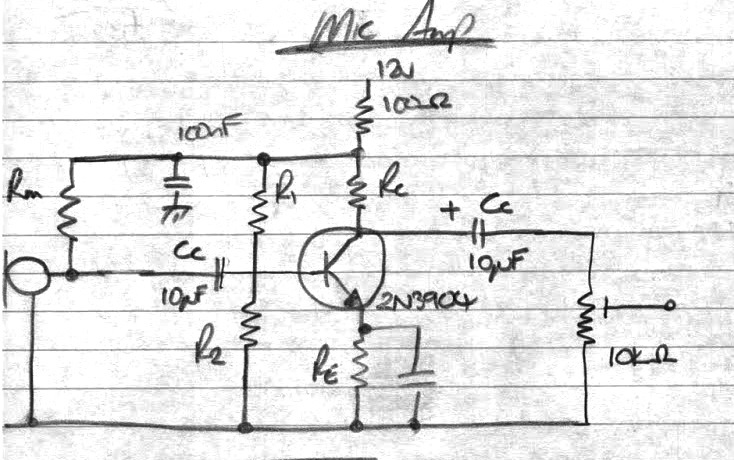 Mic Amp
12V
100Ω
100nF
Rm
R1
Rc
+ Cc
Cc
10µF
10µF
2N3904
R2
RE
10kΩ